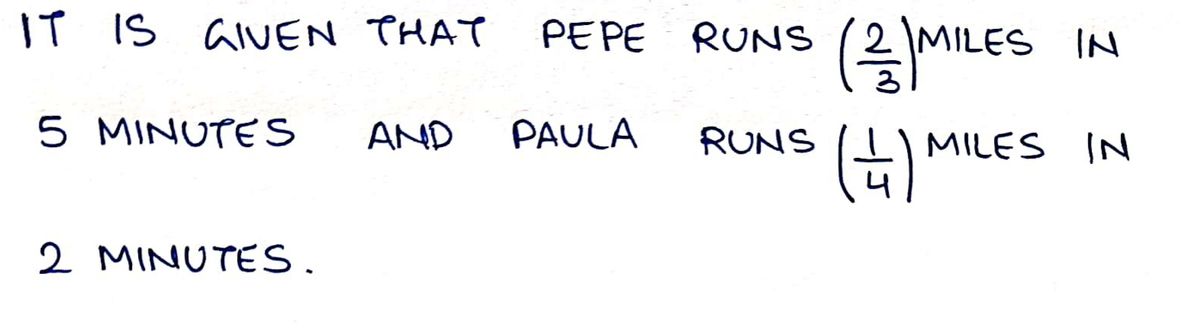 IT IS GIVEN THAT PEPE RUNS (2/3) MILES IN
5 MINUTES AND PAULA RUNS (1/4) MILES IN
2 MINUTES.